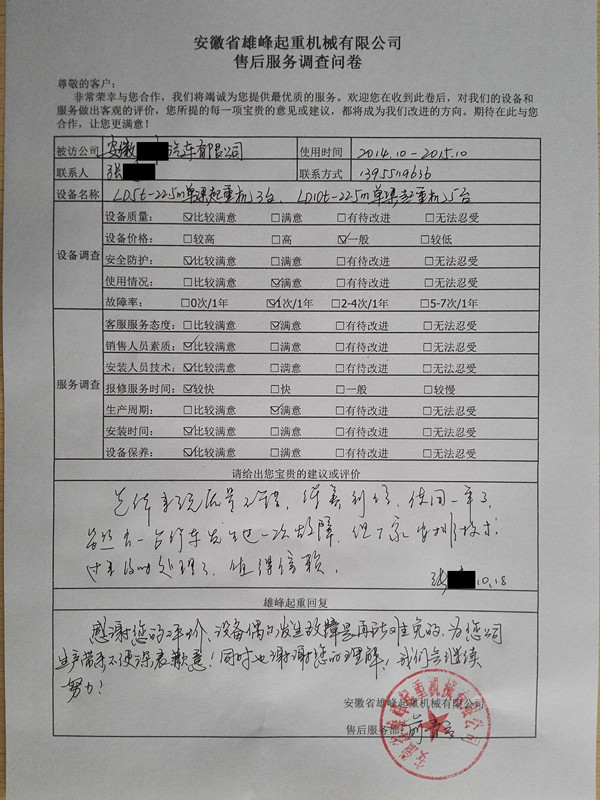 安徽省雄峰起重机械有限公司
售后服务调查问卷
尊敬的客户：
非常荣幸与您合作，我们将竭诚为您提供最优质的服务。欢迎您在收到此卷后，对我们的设备和
服务做出客观的评价，您所提的每一项宝贵的意见或建议，都将成为我们改进的方向。期待在此与您
合作，让您更满意！
被访公司 安徽 汽车有限公司 使用时间 2014.10-2015.10
联系人 张 联系方式
设备名称 LD5t-22.5m单梁起重机3台、LD10t-22.5m单梁起重机5台
设备调查
设备质量： ☑比较满意 □满意 □有待改进 □无法忍受
设备价格： □较高 □高 ☑一般 □较低
安全防护： ☑比较满意 □满意 □有待改进 □无法忍受
使用情况： □比较满意 ☑满意 □有待改进 □无法忍受
故障率： □0次/1年 ☑1次/1年 □2-4次/1年 □5-7次/1年
服务调查
客服服务态度： □比较满意 ☑满意 □有待改进 □无法忍受
销售人员素质： ☑比较满意 □满意 □有待改进 □无法忍受
安装人员技术： ☑比较满意 □满意 □有待改进 □无法忍受
报修服务时间： ☑较快 □快 □一般 □较慢
生产周期： □比较满意 ☑满意 □有待改进 □无法忍受
安装时间： ☑比较满意 □满意 □有待改进 □无法忍受
设备保养： ☑比较满意 □满意 □有待改进 □无法忍受
请给出您宝贵的建议或评价
质量不错，使用一年了
一台行车发生过一次故障，但厂家安排技术
过来及时处理了，值得信赖。
张 10.18
雄峰起重回复
感谢您的评价，设备偶尔发生故障是再所难免的，为您公司
生产带来不便深表歉意！同时也谢谢您的理解！我们会继续
努力！
安徽省雄峰起重机械有限公司
售后服务部：
安徽省雄峰起重机械有限公司